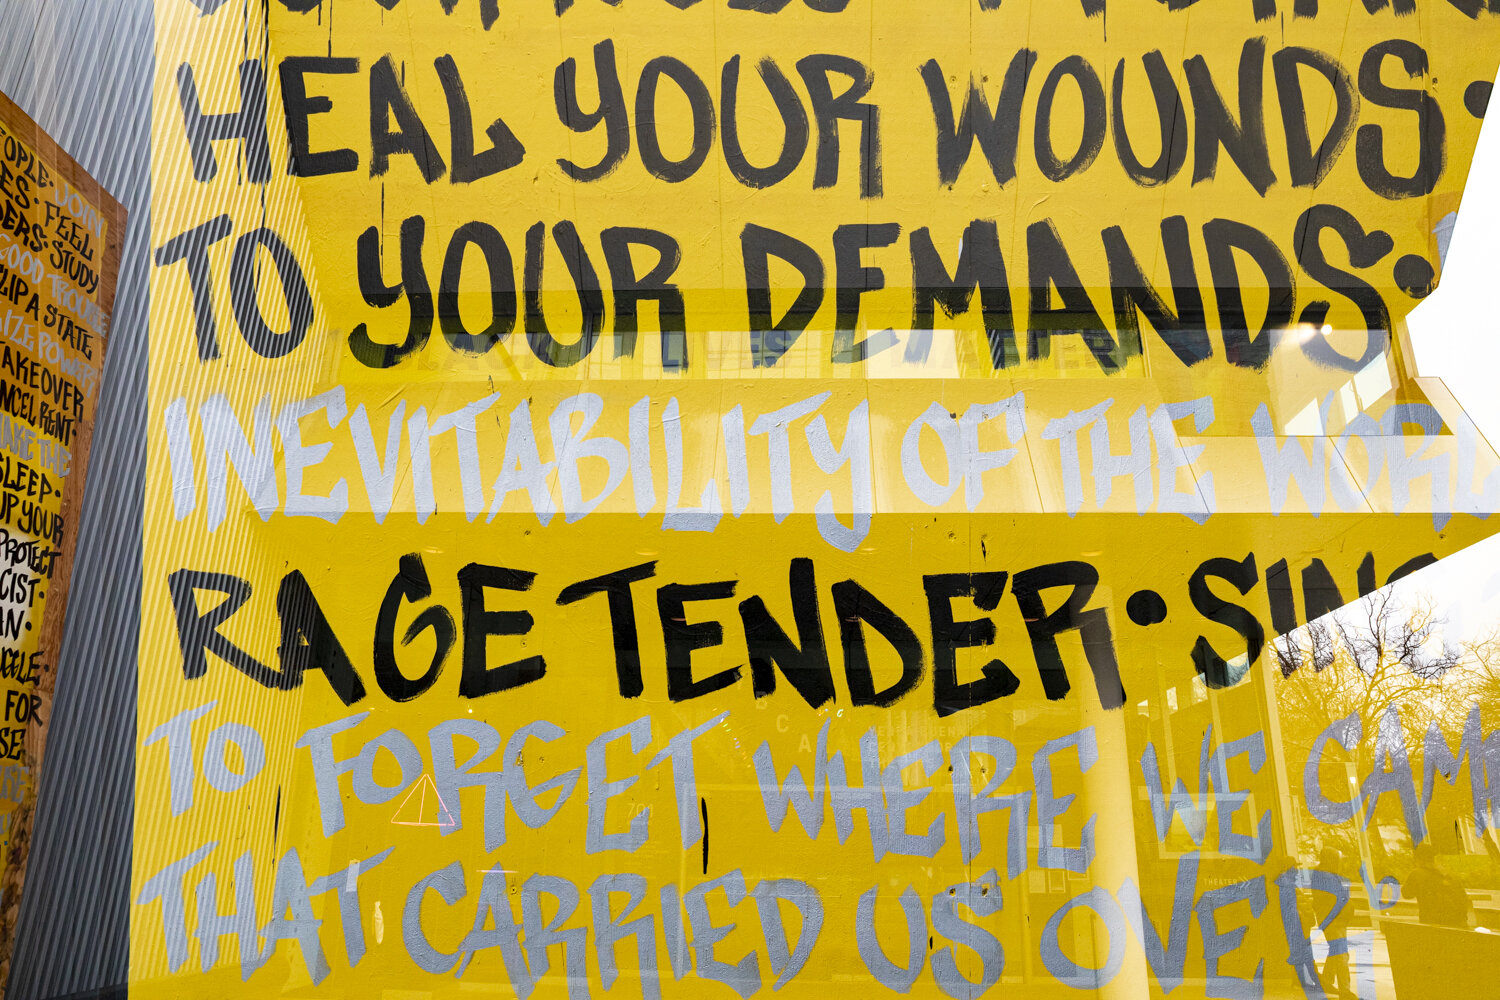 HEAL YOUR WOUNDS ·
TO YOUR DEMANDS ·
INEVITABILITY OF THE WORL
RAGE TENDER · SING
TO FORGET WHERE WE CAM
THAT CARRIED US OVER ·
OPLE · JOIN
ES · FEEL
DERS · STUDY
GOOD TROUBLE
FLIP A STATE
IZE POWER
TAKEOVER
ANCEL RENT ·
MAKE THE
SLEEP ·
UP YOUR
PROTECT
CIST ·
AN ·
UGGLE ·
FOR
SE
701
THEATER